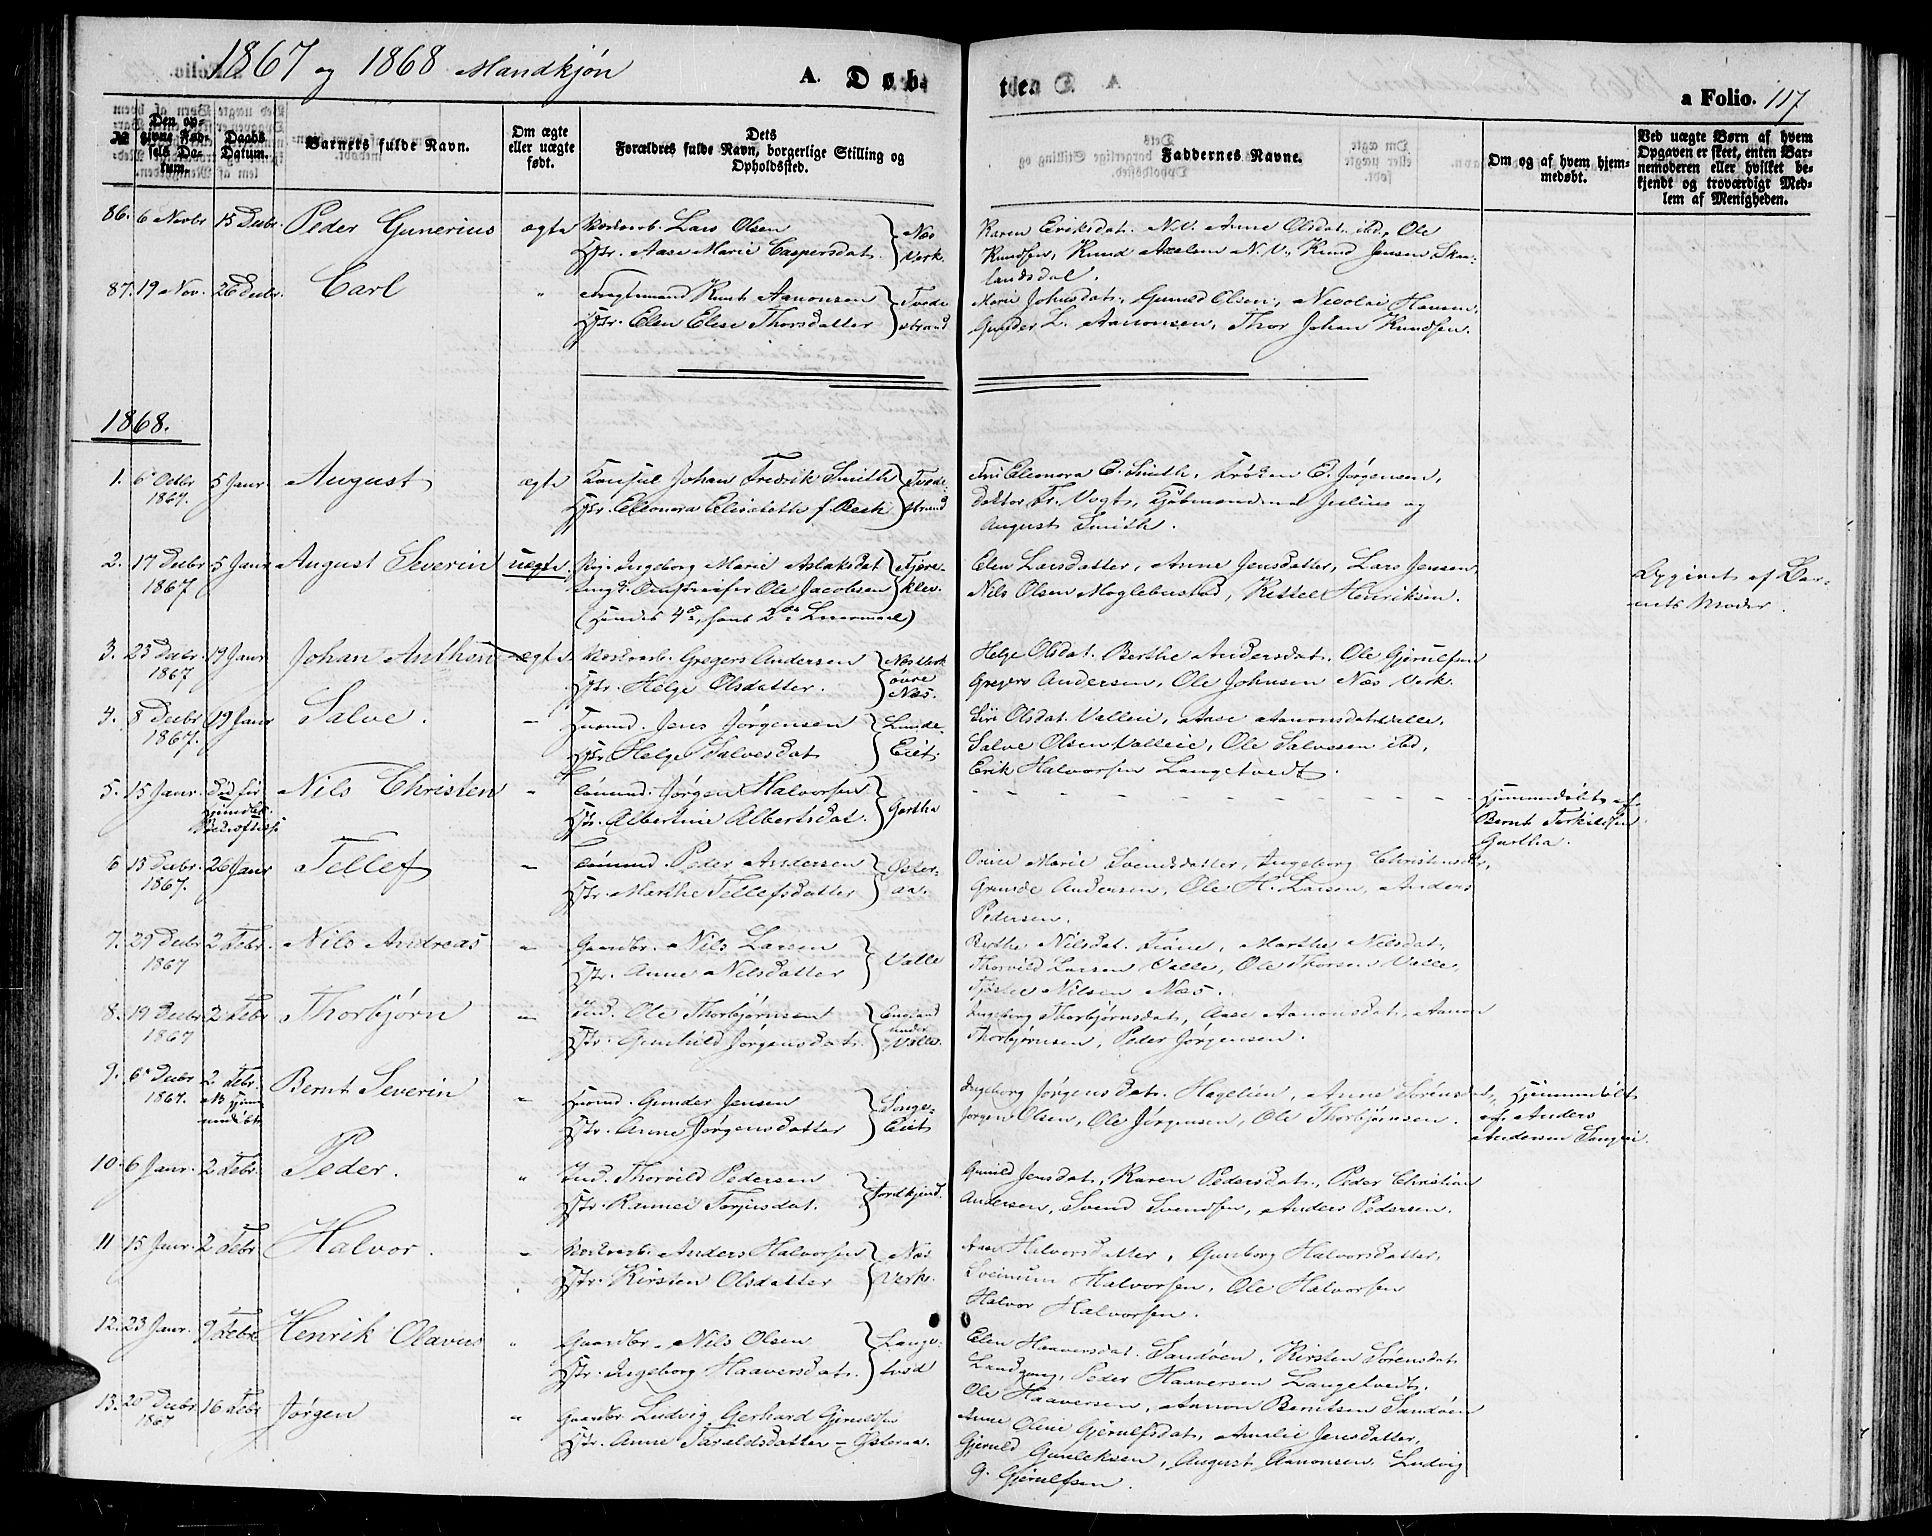 1867 og 1868 Mandkjön
A. Døb-
te
a Folio. 117
№
Den op-
givne Fød-
sels Da-
tum.
Daabs
Datum.
Barnets fulde Navn.
Om ægte
eller uægte
født.
Dets
Forældres fulde Navn, borgerlige Stilling og
Opholdssted.
Faddernes Navne.
Om og af hvem hjem-
medøbt.
Ved uægte Børn af hvem
Opgaven er skeet, enten Bar-
nemoderen eller hvilket be-
kjendt og troværdigt Med-
lem af Menigheden.
86. 6 Novbr 15 Decbr. Peder Gunerius ægte Lars Olsen
Hstr. Aase Marie Caspersdat. Næs Verk.
Karen Eriksdat. N.V. Anne Olsdat. ibd, Ole
Knudsen, Knud Axelsen N.V., Knud Jensen Ska-
landsdal.
87. 19 Nov. 26 Decbr. Carl " Knut Aanonsen
Hstr. Elen Elise Thorsdatter Tvedestrand
Marie Johnsdat., Gunuld Olsen, Nicolai Hansen,
Gunder L. Aanonsen, Thor Johan Knudsen.
1868.
1. 6 Octbr 1867. 5 Janr. August ægte Konsul Johan Fredrik Smith
Hstr. Eleonora Elisabeth f. Tvedestrand
Fru Eleonora E. Smith, Frøken E. Jørgensen,
Doktor Fr. Vogt, Kjøbmændene Julius og
August Smith.
2. 17 Decbr 1867 5 Janr August Severin uægte Pig. Ingeborg Marie Aslaksdat
ungk. Ole Jacobsen
(Hendes 4de, hans 2de Leiermaal)
Elen Larsdatter, Anne Jensdatter, Lars Jensen,
Nils Olsen Moglebustad, Kittel Henriksen.
Opgivet af Bar-
nets Moder.
3. 23 Decbr 1867 19 Janr Johan Anthon ægte Gregers Andersen
Hstr. Helge Olsdatter. Næs Verk øvre Næs.
Helge Olsdat. Berthe Andersdat. Ole Gjerulfsen
Gregers Andersen, Ole Johnsen Næs Verk.
4. 8 Decbr 1867. 19 Janr Salve. " Huusmd. Jens Jørgensen
Hstr. Helge Salvesdat. Lunde-Eiet.
Siri Olsdat. Valleie, Aase Aanonsdat. Valle,
Salve Olsen Valleie, Ole Salvesen ibd,
Erik Halvorsen Langetvedt.
5. 15 Janr. Død før Nils Christen " Jørgen Halvorsen
Hstr. Albertine Albertsdat. Gartha
Hjemmedøbt af
Bernt Terkildsen
Gartha.
6 15 Decbr. 1867. 26 Janr Tellef " Peder Andersen
Hstr. Marthe Tellefsdatter Østeraa.
Marie Svendsdatter, Ingeborg Christensdt,
Grunde Andersen, Ole H. Larsen, Anders
Pedersen.
7. 29 Decbr 1867 2 Febr. Nils Andreas " Gaardbr. Nils Larsen
Hstr. Anne Nilsdatter Valle
Berthe Nilsdat. Fiane, Marthe Nilsdat,
Thorvild Larsen Valle, Ole Thorsen Valle,
Nilsen Næs.
8. 19 Decbr 1867 2 Febr Thorbjørn " Ind. Ole Thorbjørnsen
Hstr. Gunhild Jørgensdat. under Valle
Ingeborg Thorbjørnsdat., Aase Aanonsdat., Aanon
Thorbjørnsen, Peder Jørgensen.
9. 6 Decbr 1867. 2 Febr. NB hjemmedøbt Bernt Severin " Huusmd. Gunder Jensen
Hstr. Anne Jørgensdatter Songe-Eiet.
Ingeborg Jørgensdat. Hagelien, Anne Sørensd.,
Jørgen Olsen, Ole Jørgensen, Ole Thorbjørnsen.
Hjemmedøbt
af Anders
Andersen Songeei.
10. 6 Janr. 2 Febr. Peder. " Ind. Thorvild Pedersen
Hstr. Rannei Terjesdat. Jordkjend.
Gunild Jensdat., Karen Pedersdat., Peder Christian
Andersen, Svend Svendsen, Anders Pedersen.
11 15 Janr. 2 Febr Halvor. " Anders Halvorsen
Hstr. Kirsten Olsdatter Næs Verk.
Halvorsdatter, Gunborg Halvorsdatter,
Sveinum Halvorsen, Ole Halvorsen
Halvor Halvorsen.
12. 23 Janr. 9 Febr Henrik Olavus " Gaardbr. Nils Olsen
Hstr. Ingeborg Haaversdat. Langetvedt
Elen Haaversdat. Sandøen, Kirsten Sørensdat.
Landgang, Peder Haaversen Langetvedt,
Ole Haaversen, Aanon Berntsen Sandøen
13. 20 Decbr 1867 16 Febr Jørgen " Gaardbr Ludvig Gerhard Gjerulfsen
Hstr. Anne Taraldsdatter – Østeraa.
Anne Oline Gjerulfsdat., Amalie Jensdatter,
Gjeruld Gunleksen, August Aanonsen, Ludvig
G. Gjerulfsen.